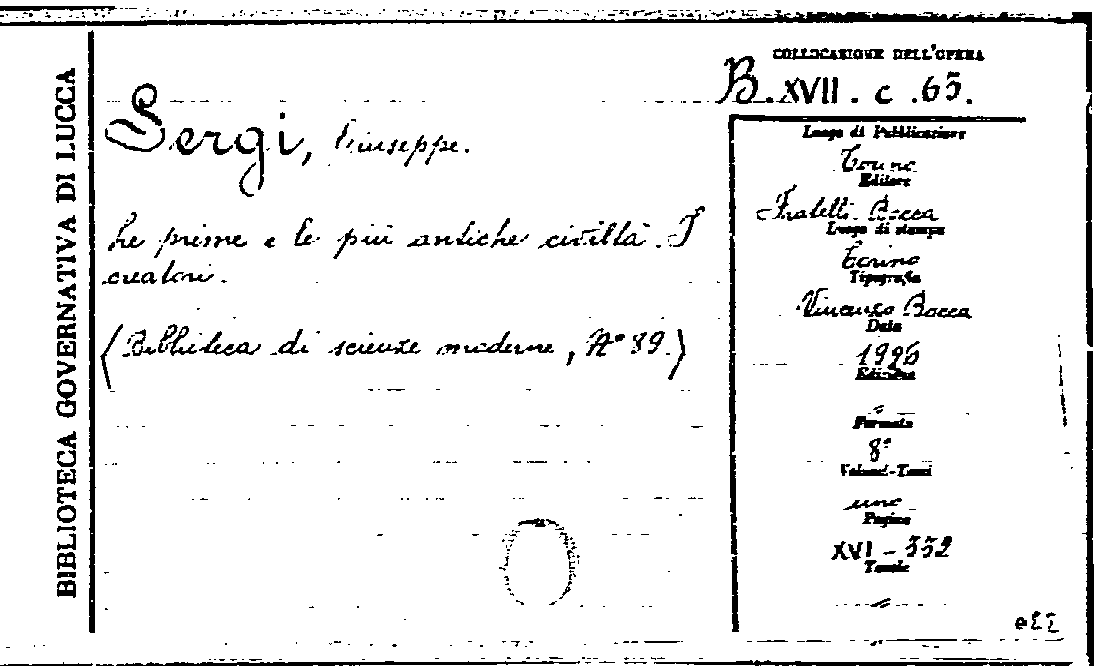 BIBLIOTECA GOVERNATIVA DI LUCCA
COLLOCAZIONE DELL'OPERA
B. XVII. c. 63.
Sergi, Giuseppe.
Le prime e le più antiche civiltà. I
creatori.
(Biblioteca di scienze moderne, N° 89.)
Luogo di Pubblicazione
Torino
Editore
Fratelli Bocca
Luogo di stampa
Torino
Tipografia
Vincenzo Bocca
Data
1926
Edizione
Formato
8°
Volumi-Tomi
uno
Pagine
XVI - 332
Tavole